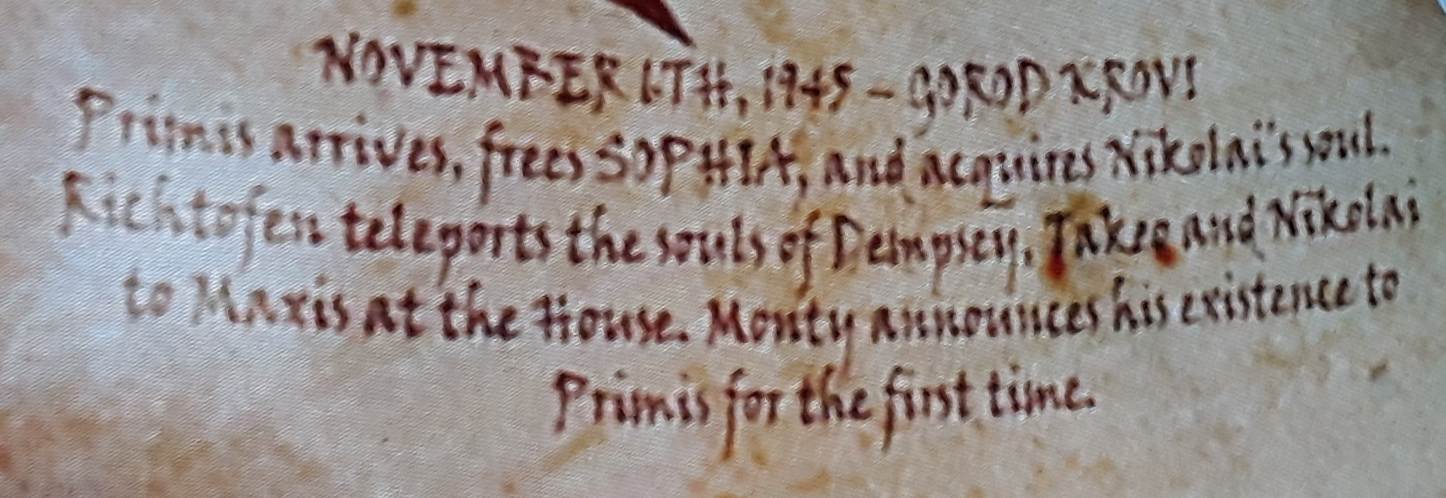 NOVEMBER 6TH, 1945 - GOROD KROVI
Primis arrives, frees SOPHIA, and acquires Nikolai's soul.
Richtofen teleports the souls of Dempsey, Takeo and Nikolai
to Maxis at the House. Monty announces his existence to
Primis for the first time.